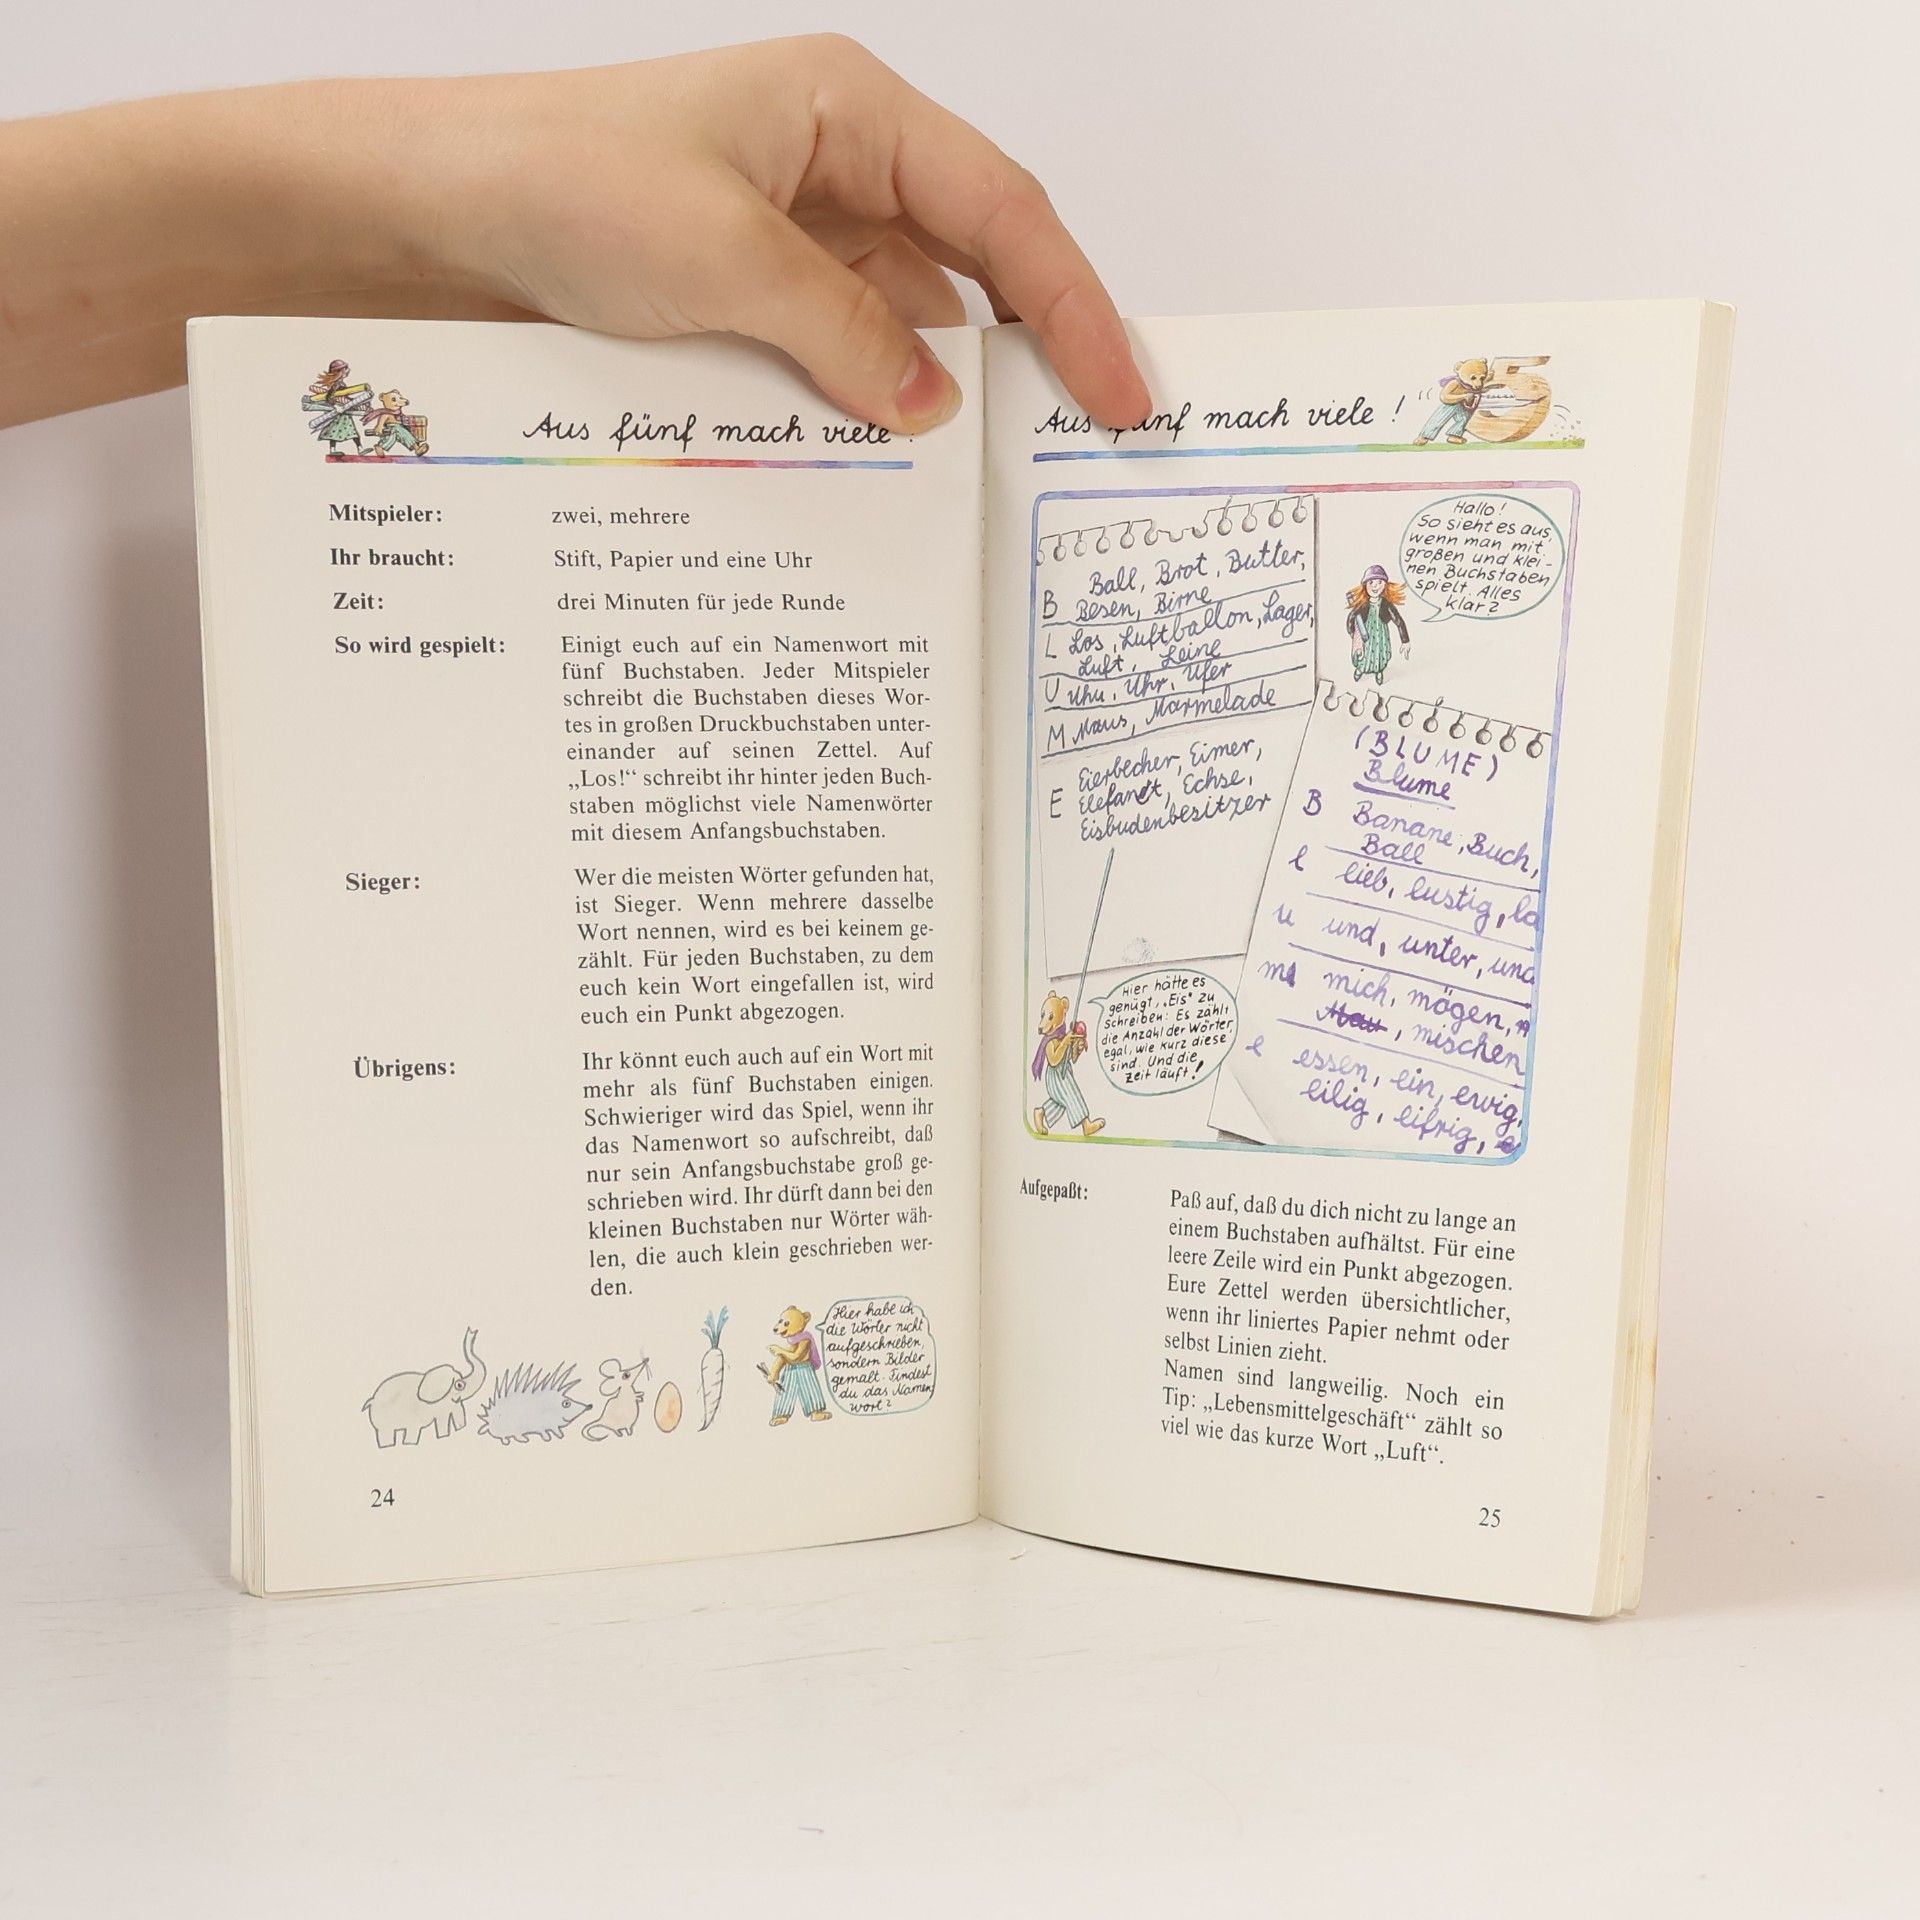 Aus fünf mach viele !
Mitspieler: zwei, mehrere
Ihr braucht: Stift, Papier und eine Uhr
Zeit: drei Minuten für jede Runde
So wird gespielt: Einigt euch auf ein Namenwort mit
fünf Buchstaben. Jeder Mitspieler
schreibt die Buchstaben dieses Wor-
tes in großen Druckbuchstaben unter-
einander auf seinen Zettel. Auf
„Los!“ schreibt ihr hinter jeden Buch-
staben möglichst viele Namenwörter
mit diesem Anfangsbuchstaben.
Sieger: Wer die meisten Wörter gefunden hat,
ist Sieger. Wenn mehrere dasselbe
Wort nennen, wird es bei keinem ge-
zählt. Für jeden Buchstaben, zu dem
euch kein Wort eingefallen ist, wird
euch ein Punkt abgezogen.
Übrigens: Ihr könnt euch auch auf ein Wort mit
mehr als fünf Buchstaben einigen.
Schwieriger wird das Spiel, wenn ihr
das Namenwort so aufschreibt, daß
nur sein Anfangsbuchstabe groß ge-
schrieben wird. Ihr dürft dann bei den
kleinen Buchstaben nur Wörter wäh-
len, die auch klein geschrieben wer-
den.
Hier habe ich
die Wörter nicht
aufgeschrieben,
sondern Bilder
gemalt. Findest
du das Namen
wort?
24
Aus fünf mach viele !
5
Hallo!
So sieht es aus,
wenn man mit
großen und klei-
nen Buchstaben
spielt. Alles
klar?
Ball, Brot, Butter,
B Besen, Birne
L Los, Luftballon, Lager,
Luft, Leine
U Uhu, Uhr, Ufer
M Maus, Marmelade
Eierbecher, Eimer,
E Elefant, Echse,
Eisbudenbesitzer
(BLUME)
Blume
B Banane, Buch,
Ball
l lieb, lustig, la
u und, unter, und
m mich, mögen,
mischen
e essen, ein, ewig,
eilig, eifrig,
Hier hätte es
genügt, „Eis“ zu
schreiben: Es zählt
die Anzahl der Wörter,
egal, wie kurz diese
sind. Und die
Zeit läuft!
Aufgepaßt: Paß auf, daß du dich nicht zu lange an
einem Buchstaben aufhältst. Für eine
leere Zeile wird ein Punkt abgezogen.
Eure Zettel werden übersichtlicher,
wenn ihr liniertes Papier nehmt oder
selbst Linien zieht.
Namen sind langweilig. Noch ein
Tip: „Lebensmittelgeschäft“ zählt so
viel wie das kurze Wort „Luft“.
25